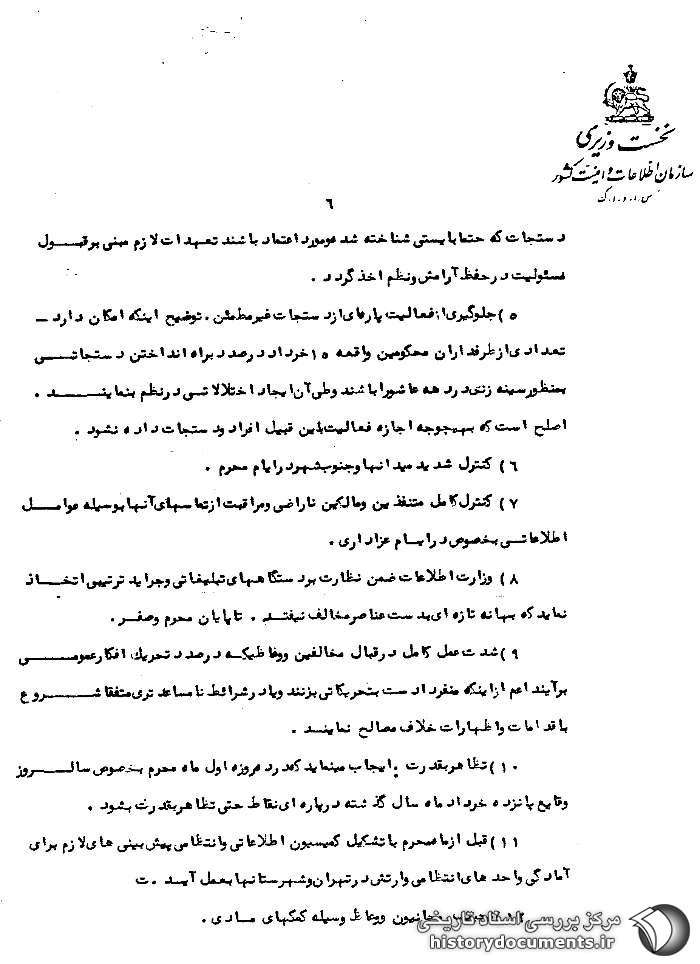 نخست وزیری
سازمان اطلاعات و امنیت کشور
س.ا.و.ا.ک
۶
دستجات که حتما بایستی شناخته شده و مورد اعتماد باشند تعهدات لازم مبنی بر قبول
مسئولیت در حفظ آرامش و نظم اخذ گردد .
۵) جلوگیری از فعالیت پاره‌ای از دستجات غیر مطمئن . توضیح اینکه امکان دارد -
تعدادی از طرفداران محکومین واقعه ۱۵ خرداد در صدد براه انداختن دستجاتی
بمنظور سینه زنی در دهه عاشورا باشند و طی آن ایجاد اختلالاتی در نظم بنمایند .
اصلح است که بهیچوجه اجازه فعالیت باین قبیل افراد و دستجات داده نشود .
۶) کنترل شدید میدانها و جنوب شهر در ایام محرم .
۷) کنترل کامل متنفذین و مالکین ناراضی و مراقبت از تماسهای آنها بوسیله عوامل
اطلاعاتی بخصوص در ایام عزاداری .
۸) وزارت اطلاعات ضمن نظارت بر دستگاههای تبلیغاتی و جراید ترتیبی اتخاذ
نماید که بهانه تازه ای بدست عناصر مخالف نیفتد . تا پایان محرم و صفر .
۹) شدت عمل کامل در قبال مخالفین و وعاظیکه در صدد تحریک افکار عمومی
برآیند اعم از اینکه منفردا دست بتحریکاتی بزنند و یا در شرائط نامساعد تری متفقا شروع
باقدامات و اظهارات خلاف مصالح نمایند .
۱۰) تظاهر بقدرت . ایجاب مینماید که در دهروزه اول ماه محرم بخصوص سالروز
وقایع پانزده خرداد ماه سال گذشته در پاره ای نقاط حتی تظاهر بقدرت بشود .
۱۱) قبل از ماه محرم با تشکیل کمیسیون اطلاعاتی و انتظامی پیش بینی های لازم برای
آمادگی واحدهای انتظامی و ارتش در تهران و شهرستانها بعمل آید . ت
و وعاظ وسیله کمکهای مادی .
مرکز بررسی اسناد تاریخی
historydocuments.ir